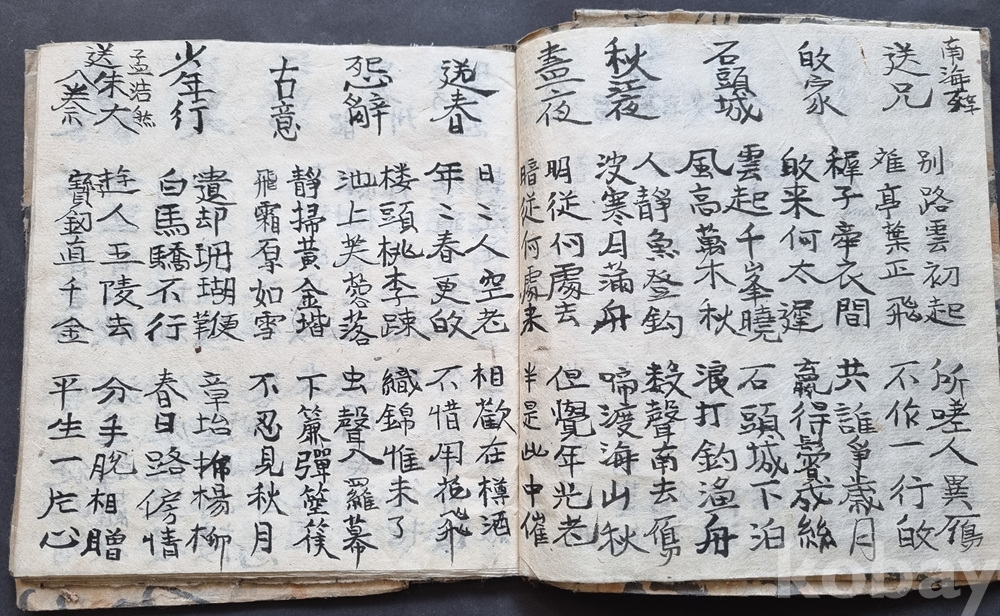 南海
送兄
別路雲初起 所嗟人異鴈
难亭葉正飛 不作一行皈
皈家
穉子牽衣間 共誰爭歲月
皈來何太遲 贏得鬢成絲
石頭城
雲起千峯曉 石頭城下泊
風高萬木秋 浪打釣漁舟
秋夜
人靜魚登釣 數聲南去鴈
波寒月滿舟 啼渡海山秋
盡夜
明從何處去 但覺年光老
暗從何處来 半是此中催
送春
日〻人空老 相歡在樽酒
年〻春更皈 不惜用花飛
怨辭
楼頭桃李踈 織錦惟未了
池上芙蓉落 虫聲入羅幕
古意
靜掃黃金堦 下簾彈箜篌
飛霜厚如雪 不忍見秋月
少年行
遺却珊瑚鞭 章坮折楊柳
白馬驕不行 春日路傍情
孟浩然
送朱大入秦
遊人五陵去 分手脫相贈
寶釰直千金 平生一片心
kobay